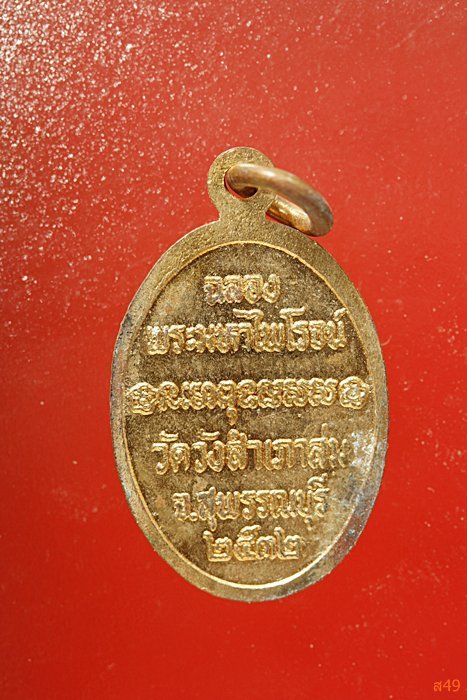 ฉลอง
พระมหาไพโรจน์
วัดวังสำเภาล่ม
จ.สุพรรณบุรี
๒๕๓๒
ส49